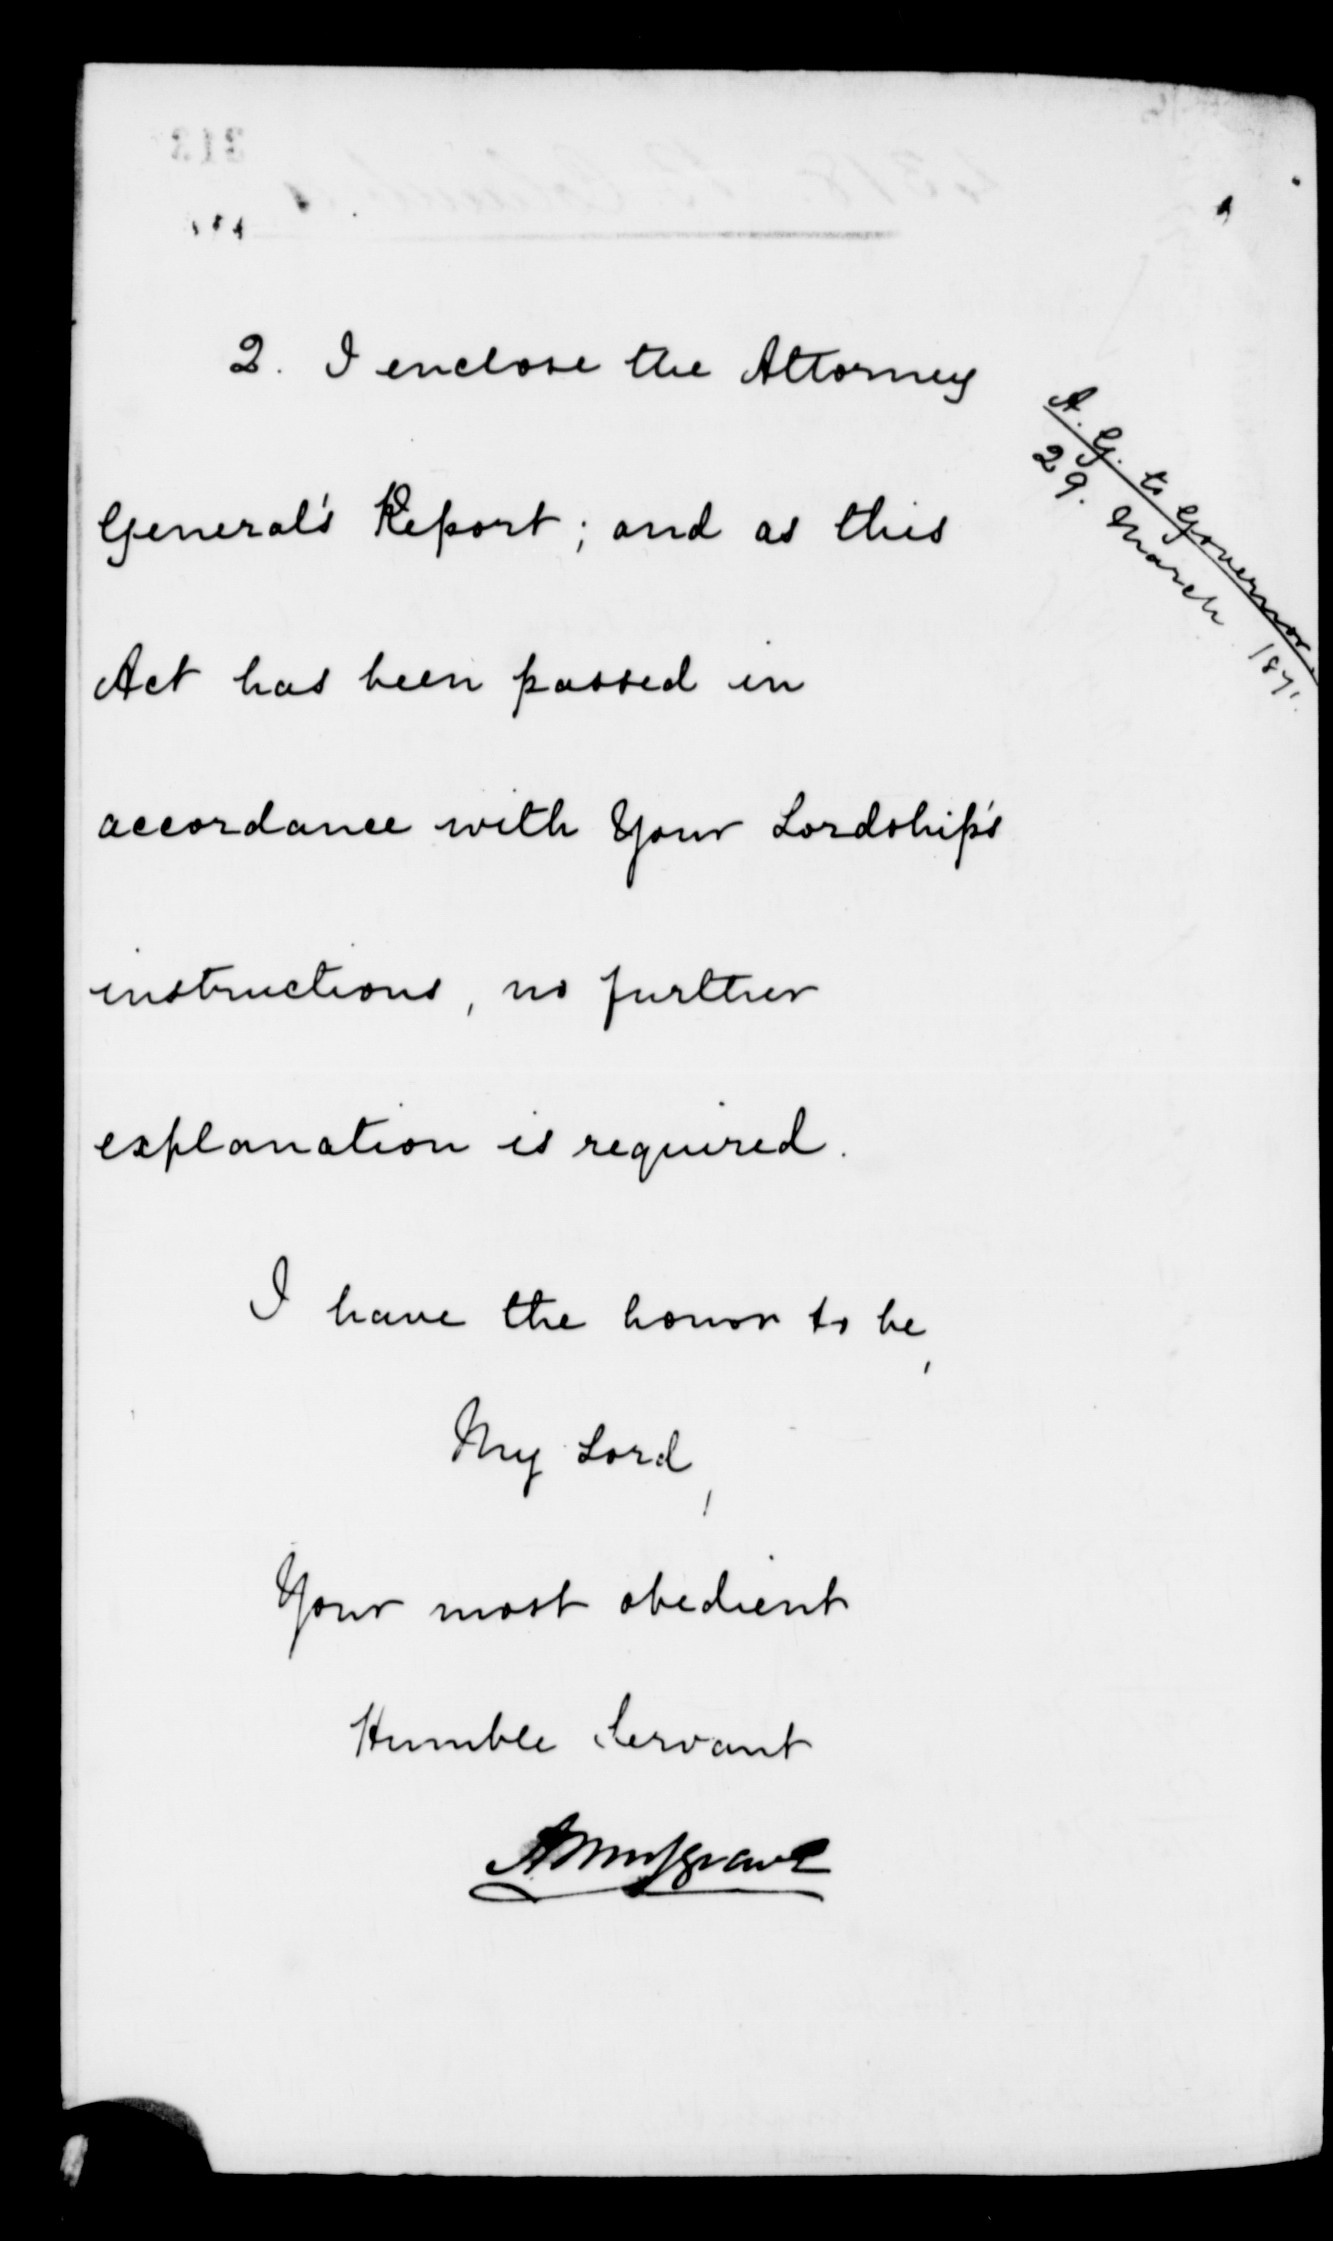 2. I enclose the Attorney
General's Report; and as this
Act has been passed in
accordance with Your Lordship's
instructions, no further
explanation is required.
I have the honor to be,
My Lord,
Your most obedient
Humble Servant
AMusgrave
A. G. to Governor.
29. March 1871.